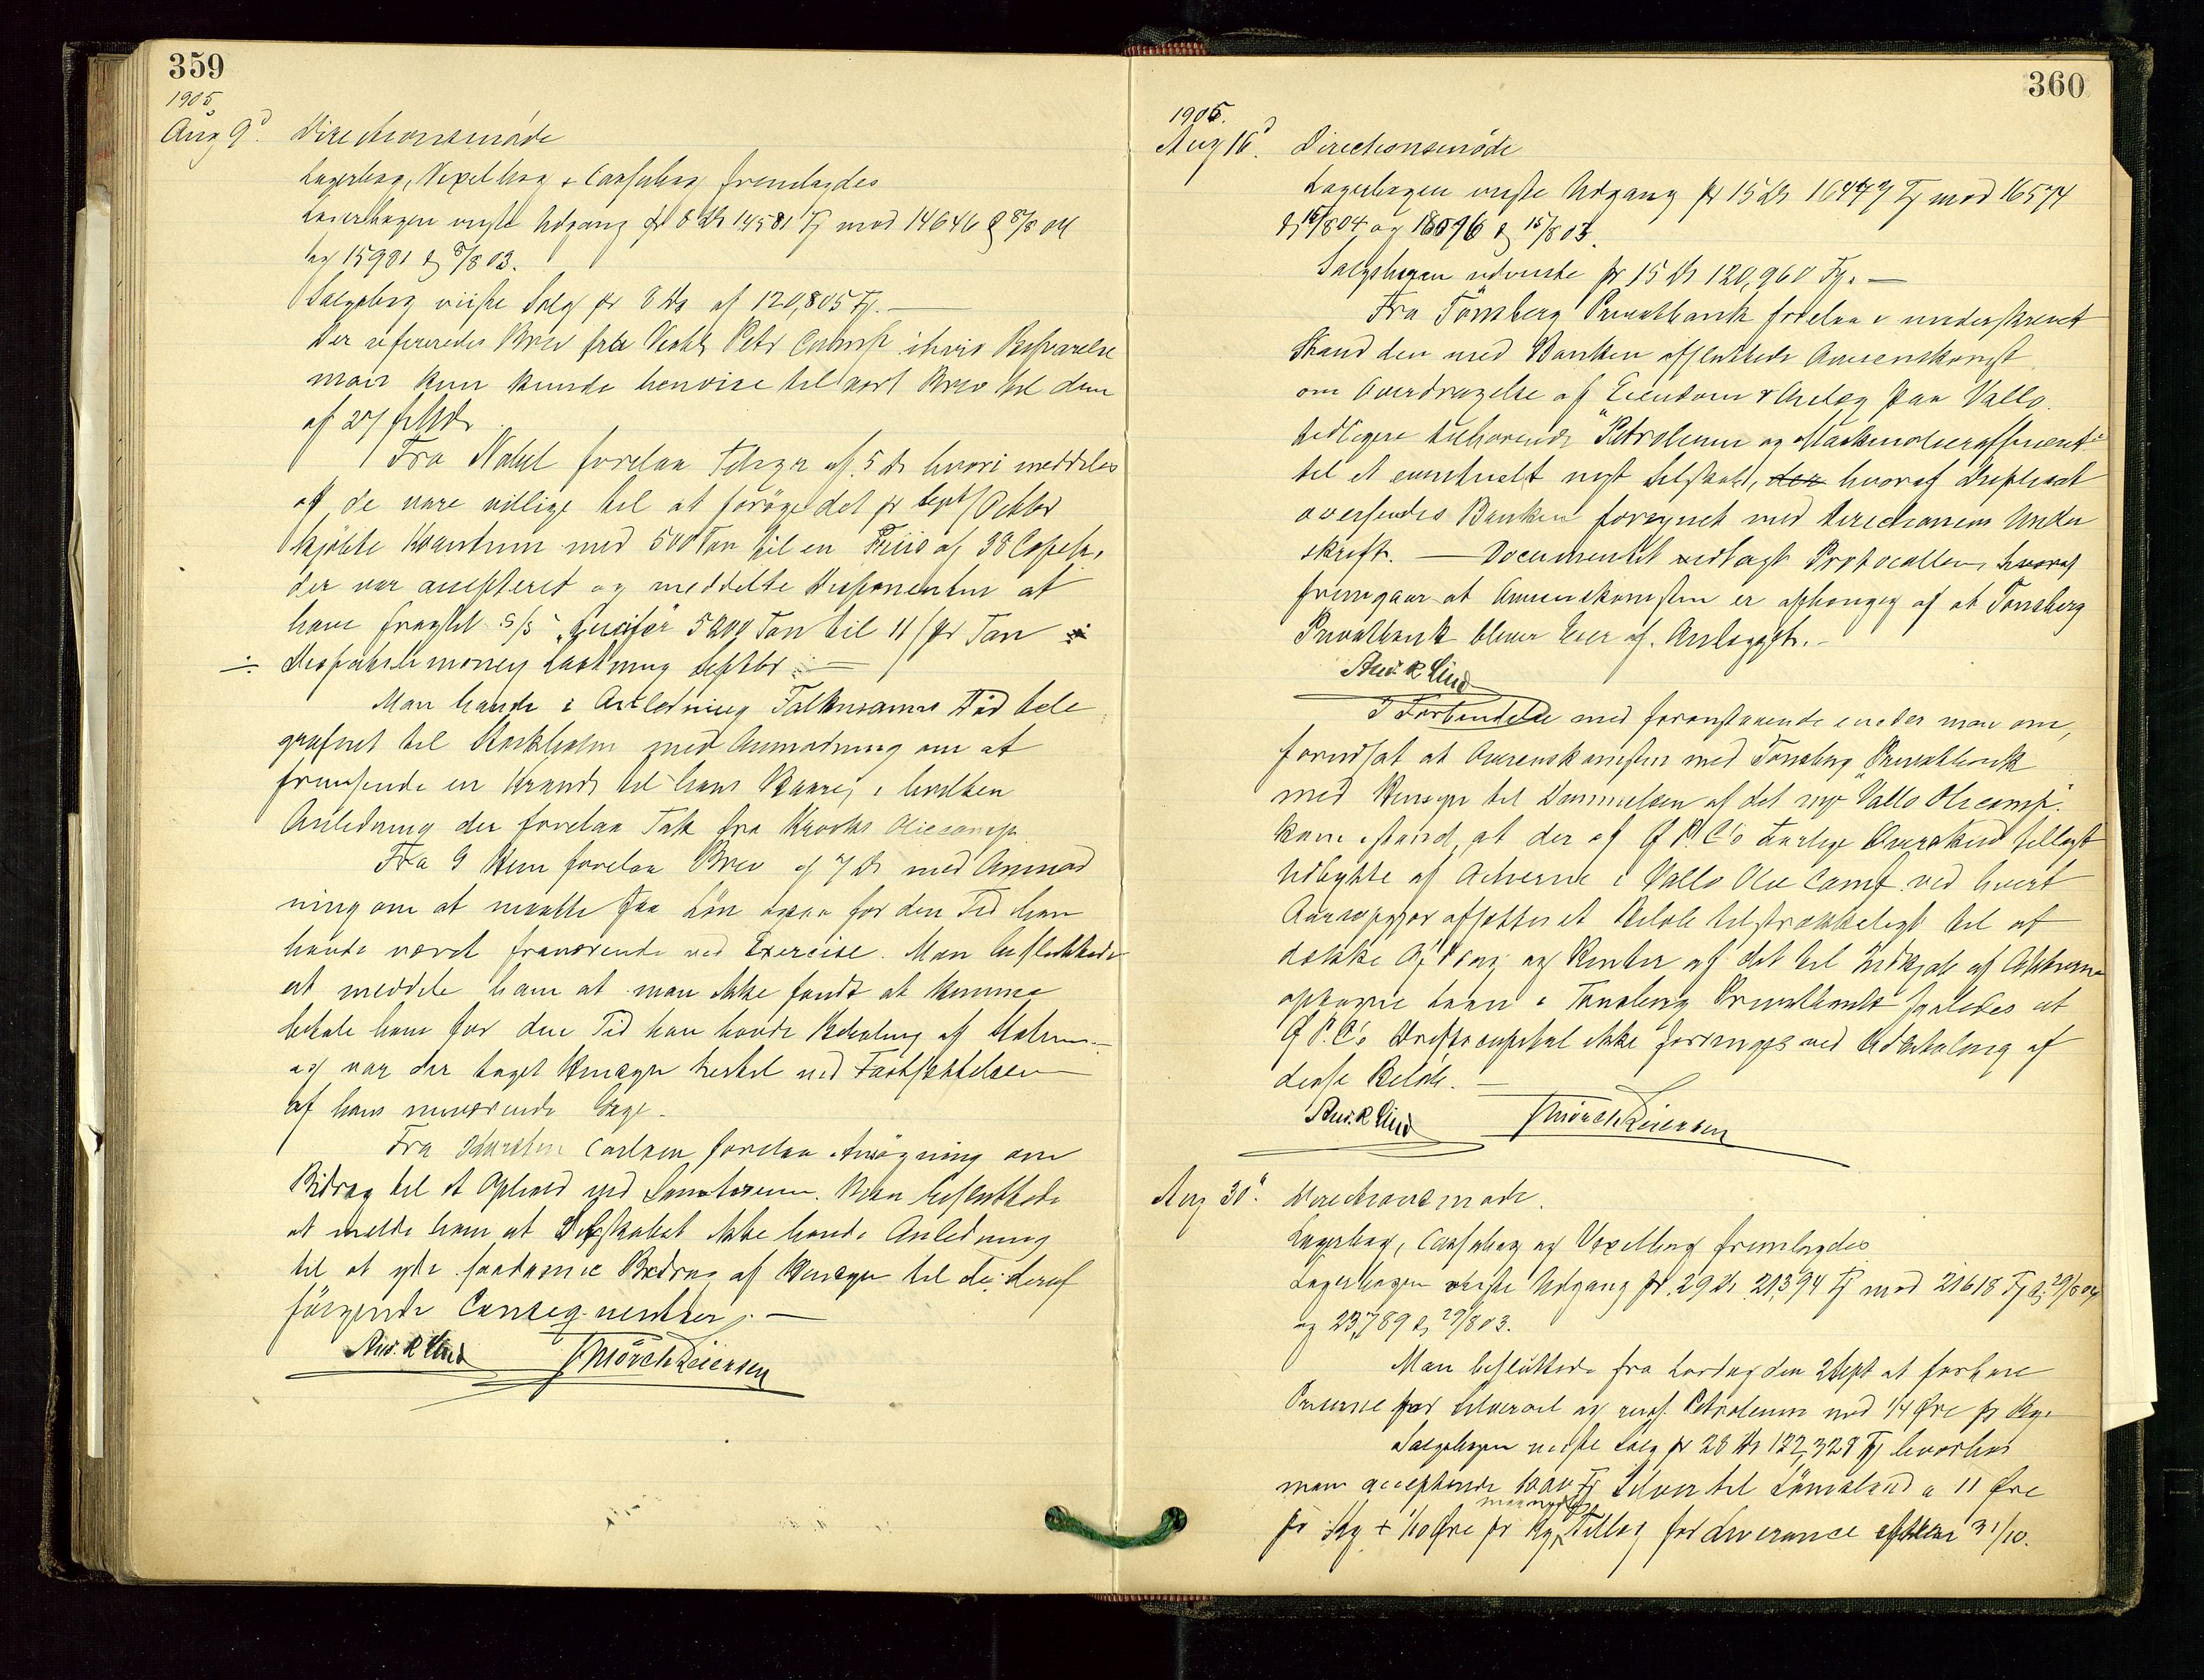 359
1905
Aug 9d. Directionsmöde
Lagerbog, Vexelbog + Cassabog fremlagdes
Lagerbogen viiste Udgang pr 8 ds 14581 Fj mod 14646 d 8/8 04
og 15981 d 8/8 03.
Salgsbog viiste Salg pr 8 ds af 120,805 Fj. —
Der refereredes Brev fra Vestl. Petr Comp. ihvis Besvarelse
man kun kunde henvise til vort Brev til dem
af 27
Fra Nobel forelaa Telegr af 5 ds hvori meddeles
at de vare villige til at foröge det pr Sept/Octbr
kjöbte Kvantum med 500 Ton til en Priis af 38 Copek,
der var accepteret og meddelte Disponenten at
have fragtet S/S "Lucifer" 5200 Ton til 11/ pr Ton
÷ Dispatchmoney Lastning Septbr. —
Man havde i Anledning Falkmans Död tele
graferet til Stockholm med Anmodning om at
fremsende en Krands til hans Baare, i hvilken
Anledning der forelaa Tak fra Krooks Oliecomp.
Fra G Hem forelaa Brev af 7 ds med Anmod
ning om at maatte faa Lön ogsaa for den Tid han
havde været fraværende ved Exercise. Man besluttede
at meddele ham at man ikke fandt at kunne
betale ham for den Tid han havde Betaling af Staten
og var der taget Hensyn hertil ved Fastsættelsen
af hans nuværende Gage.
Fra Karsten Carlsen forelaa Ansögning om
Bidrag til et Ophold ved Sanatorium. Man besluttede
at melde ham at Selskabet ikke havde Anledning
til at yde saadanne Bidrag af Hensyn til de deraf
fölgende Conseqventser. —
And. R Lind J Mörch Reiersen
360
1905.
Aug 16d. Directionsmöde
Lagerbogen viiste Udgang pr 15 ds 16477 Fj mod 16574
d 15/8 04 og 18596 d 15/8 03.
Salgsbogen udviiste pr 15 ds 120,960 Fj. —
Fra Tönsberg Privatbank forelaa i underskrevet
Stand den med Banken afsluttede Overenskomst
om Overdragelse af Eiendom & Anlæg paa Vallö
tidligere tilhörende "Petroleum og Maskinolieraffineri"
til et eventuelt nyt Selskab, hvoraf Duplicat
oversendes Banken forsynet med Directionens Under
skrift. — Documentet vedlagt Protocollen, hvoraf
fremgaar at Overenskomsten er afhængig af at Tönsberg
Privatbank bliver Eier af Anlægget. —
And. R Lind
I Forbindelse med foranstaaende enedes man om,
forudsat at Overenskomsten med Tönsberg Privatbank
med Hensyn til Dannelsen af det nye "Vallö Oliecomp."
kom istand, at der af Ö P. C's aarlige Overskud tillagt
Udbytte af Actierne i Vallö Olie Comp. ved hvert
Aarsopgjör afsættes et Belöb tilstrækkeligt til at
dække Afdrag og Renter af det til Indkjöb af Aktierne
optagne Laan i Tönsberg Privatbank saaledes at
Ö P. C's Driftscapital ikke forringes ved Udbetaling af
disse Belöb. —
And. R Lind J Mörch Reiersen
Aug 30d. Directionsmöde.
Lagerbog, Cassabog og Vexelbog fremlagdes
Lagerbogen viiste Udgang pr. 29 ds 21,394 Fj mod 21618 Fj d. 29/8 04
og 23,789 d 29/8 03.
Man besluttede fra Lördag den 2 Sept at forhöie
Priserne for Silveroil og russ. Petroleum med 1/4 Öre pr Kg.
Salgsbogen viiste Salg pr 28 ds 122,328 Fj hvorhos
man accepterede 1000 Fj Silver til Lömsland a 11 Öre
pr Kg + 1/10 Öre pr Kg maanedlig Tillæg for Leverance efter 31/10.